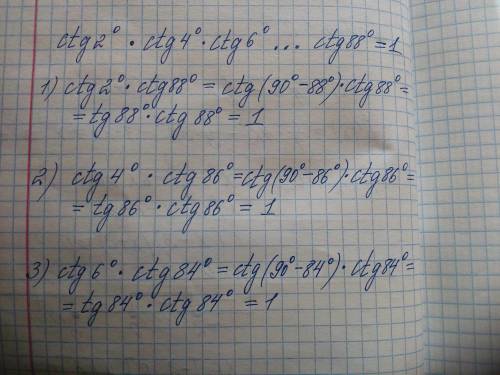 ctg 2° · ctg 4° · ctg 6° ... ctg 88° = 1
1) ctg 2° · ctg 88° = ctg (90° - 88°) · ctg 88° =
= tg 88° · ctg 88° = 1
2) ctg 4° · ctg 86° = ctg (90° - 86°) · ctg 86° =
= tg 86° · ctg 86° = 1
3) ctg 6° · ctg 84° = ctg (90° - 84°) · ctg 84° =
= tg 84° · ctg 84° = 1